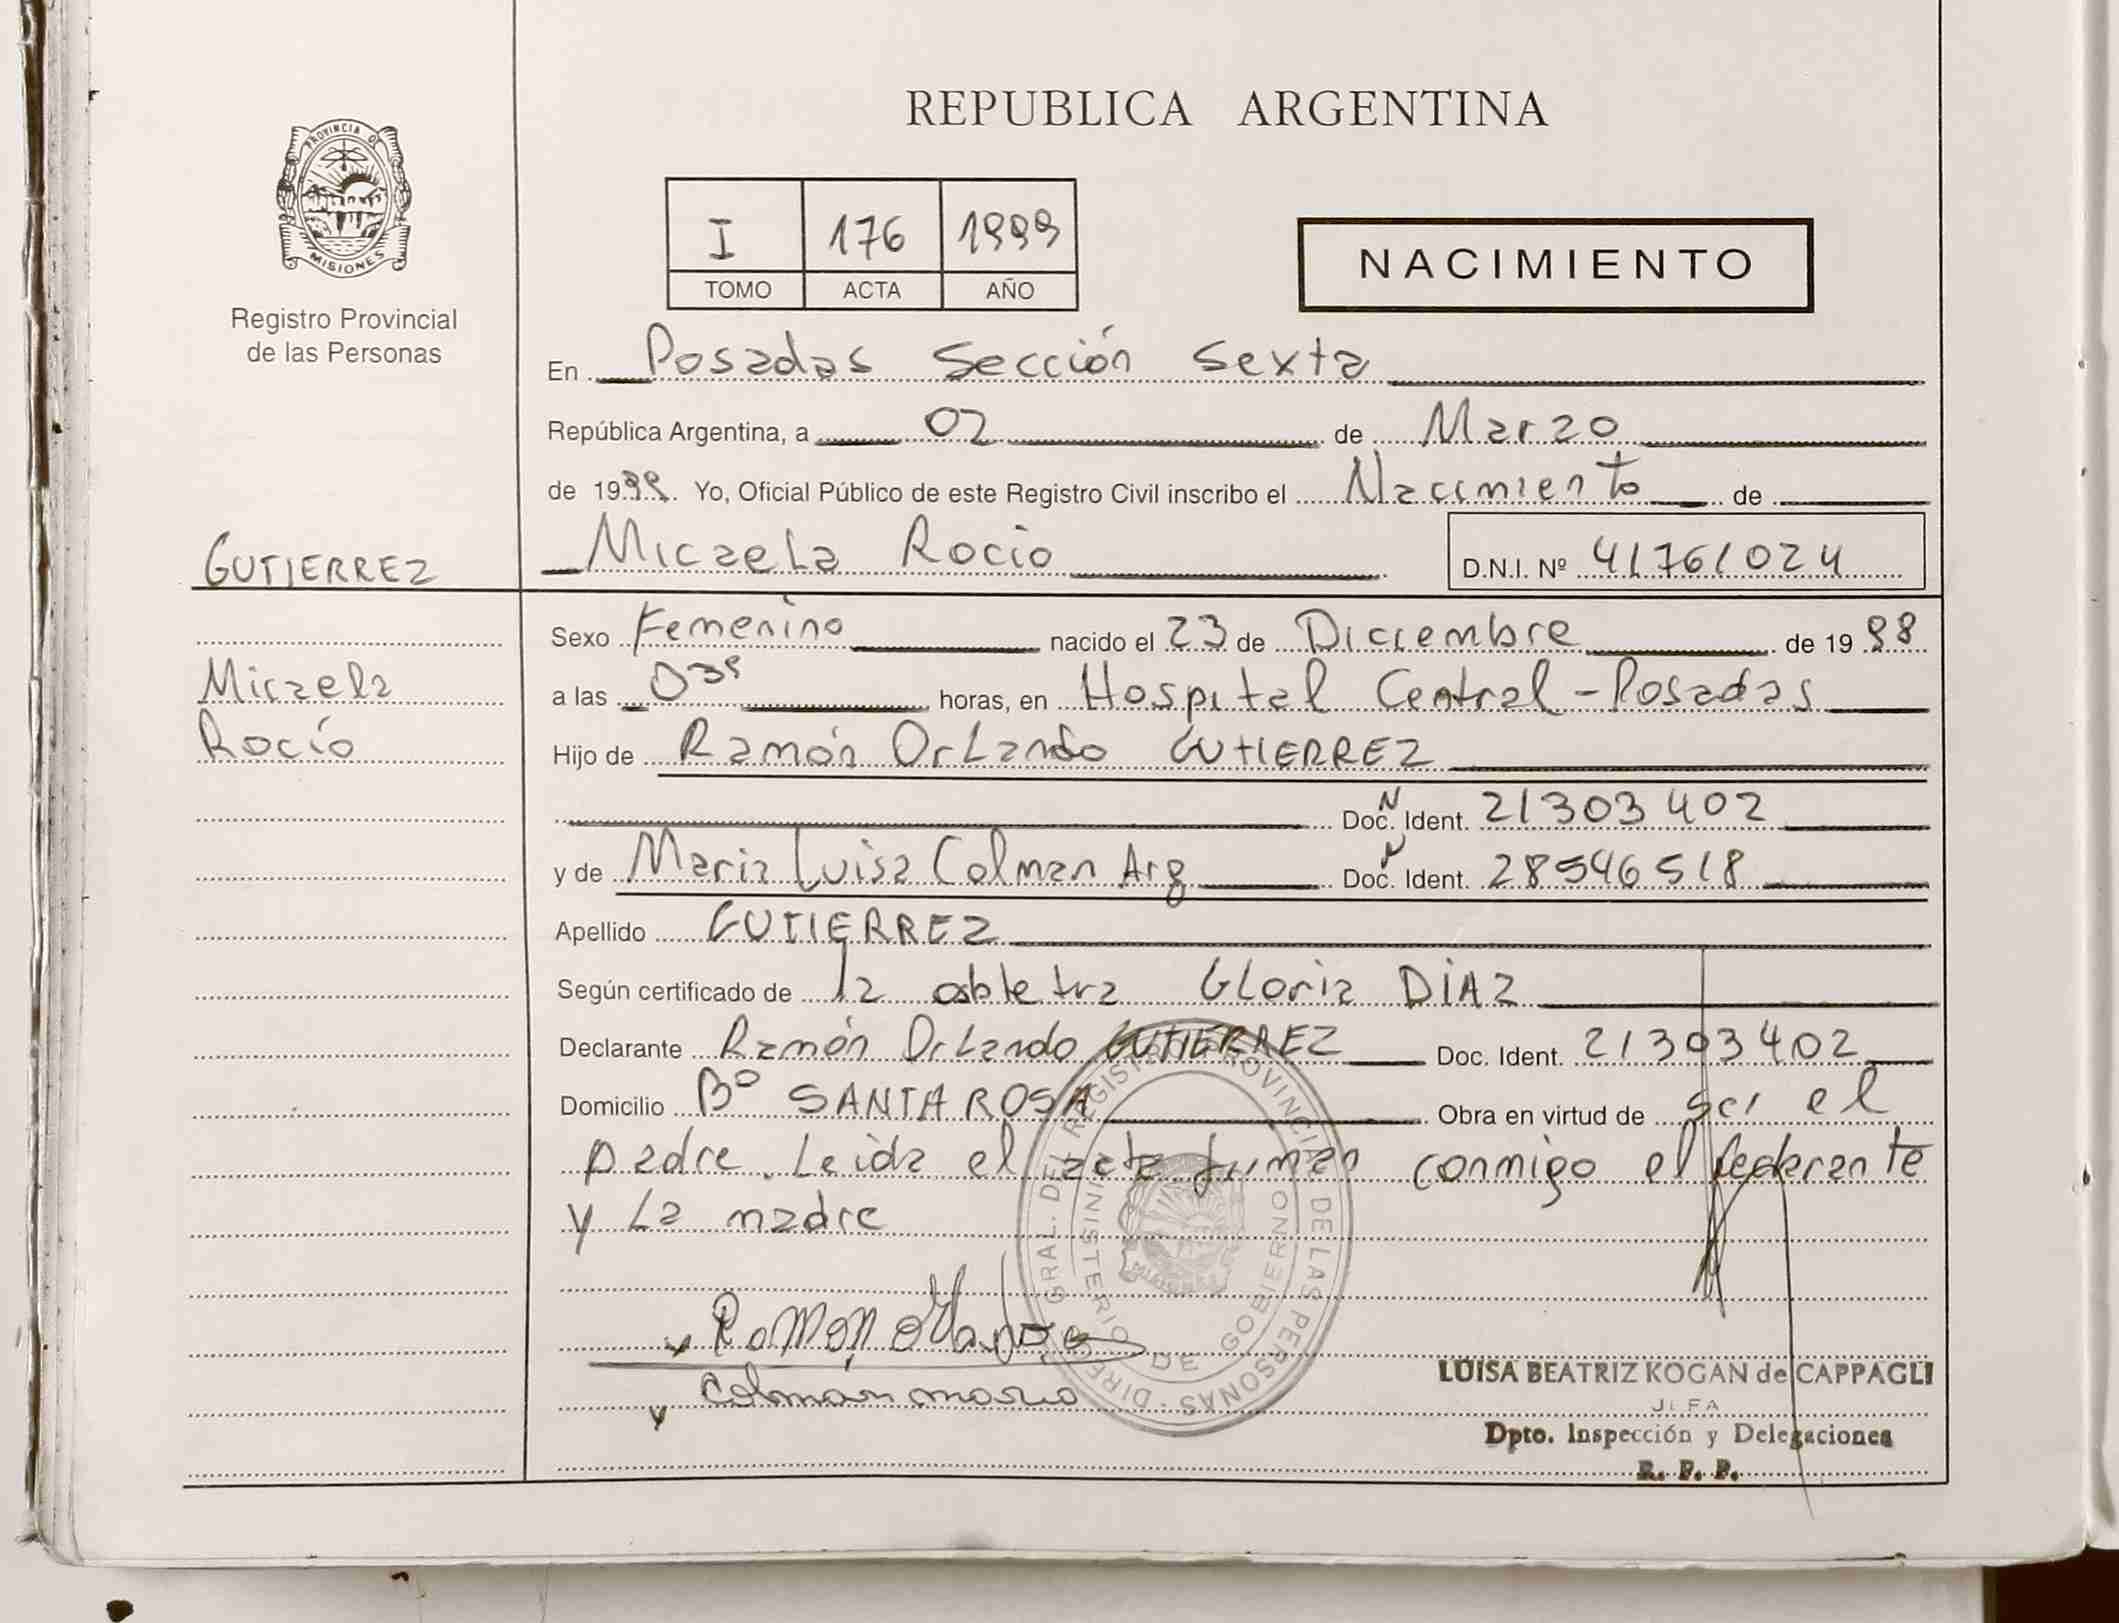 REPUBLICA ARGENTINA
PROVINCIA DE
MISIONES
Registro Provincial
de las Personas
I 176 1999
TOMO ACTA AÑO
NACIMIENTO
En Posadas Sección Sexta
República Argentina, a 02 de Marzo
de 1999. Yo, Oficial Público de este Registro Civil inscribo el Nacimiento de
GUTIERREZ
Micaela Rocio D.N.I. Nº 41761024
Sexo Femenino nacido el 23 de Diciembre de 19 98
Micaela
a las 03 horas, en Hospital Central - Posadas
Rocío
Hijo de Ramón Orlando GUTIERREZ
N
Doc. Ident. 21303402
N
y de Maria Luisa Colman Arg Doc. Ident. 28546518
Apellido GUTIERREZ
Según certificado de la obstetra Gloria DIAZ
Declarante Ramón Orlando GUTIERREZ Doc. Ident. 21303402
Domicilio Bº SANTA ROSA Obra en virtud de ser el
padre. Leida el acta firman conmigo el
y La madre
DIRECC. GRAL. DEL REGISTRO PROVINCIAL DE LAS PERSONAS
MINISTERIO DE GOBIERNO
Ramon
Colman maria
LUISA BEATRIZ KOGAN de CAPPAGLI
JEFA
Dpto. Inspección y Delegaciones
R. P. P.